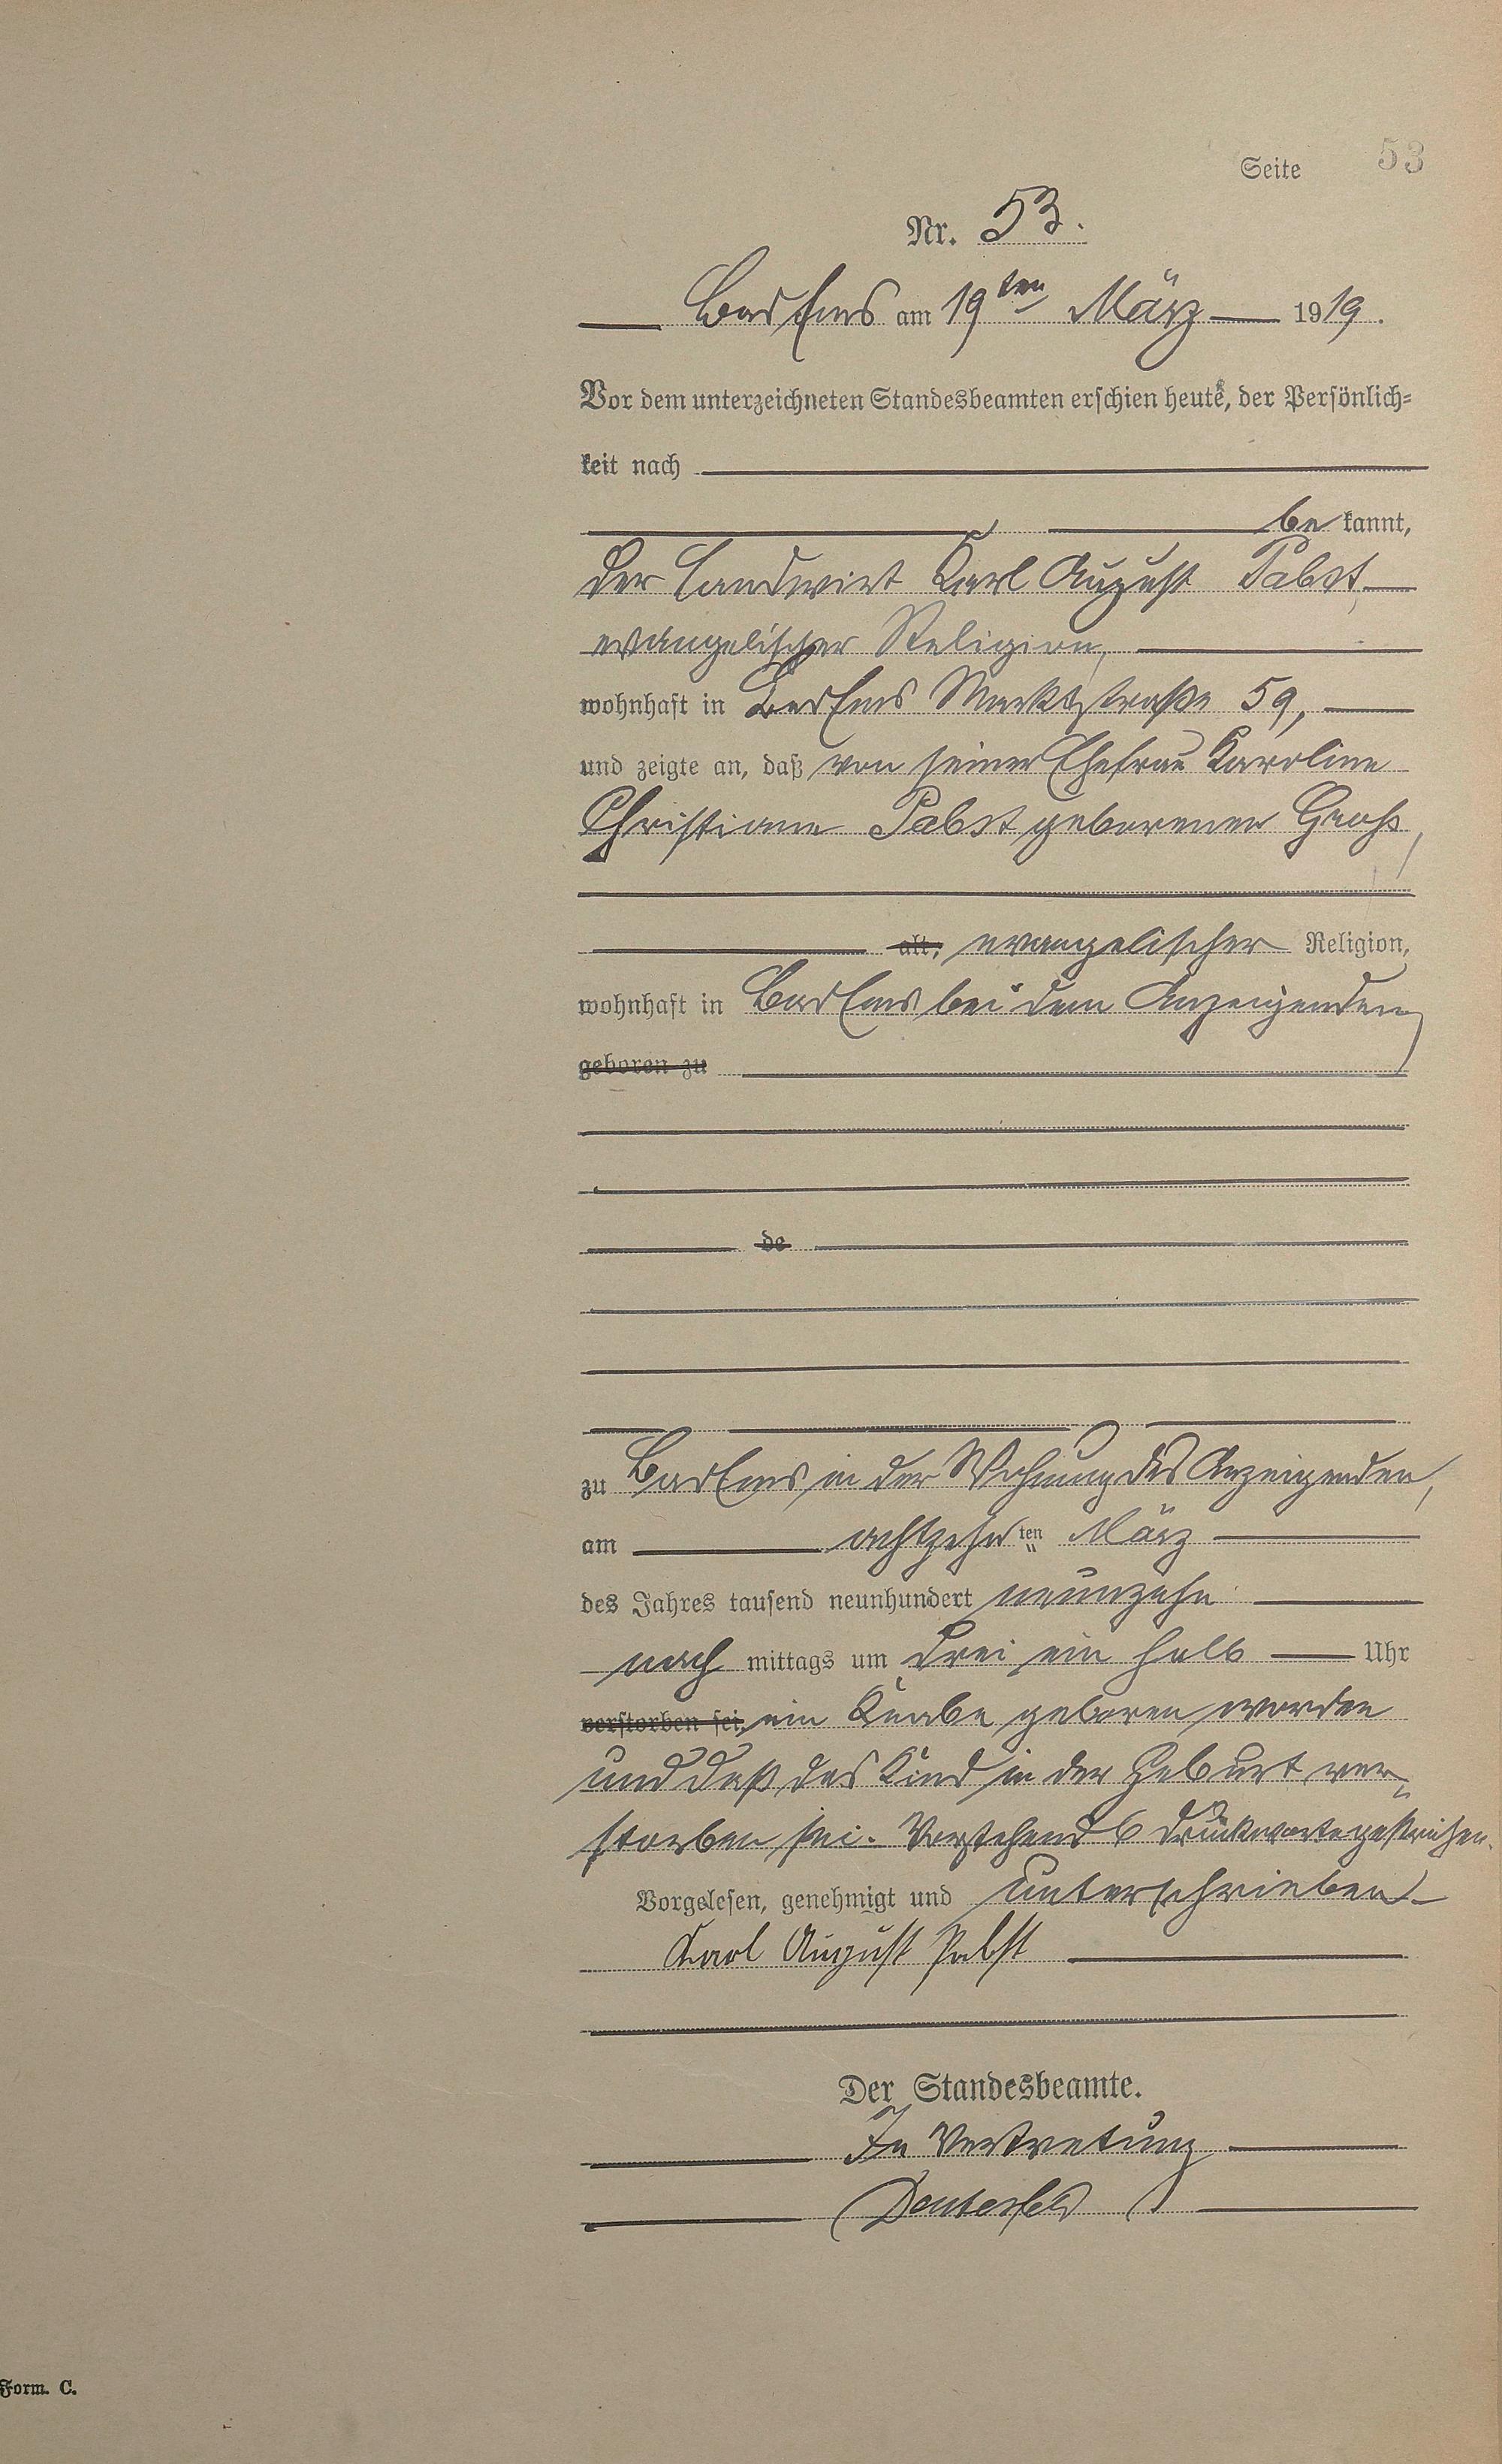 Seite 53
Nr. 53.
Bad Ems am 19ten März 1919.
Vor dem unterzeichneten Standesbeamten erschien heute, der Persönlich=
keit nach
be kannt,
der Landwirt Karl August Pabst,
evangelischer Religion,
wohnhaft in Bad Ems Marktstraße 59,
und zeigte an, daß von seiner Ehefrau Karoline
Christiane Pabst geborener
alt, evangelischer Religion,
wohnhaft in Bad Ems bei dem Anzeigenden,
geboren zu
de
zu Bad Ems in der Wohnung des Anzeigenden,
am achtzehnten März
des Jahres tausend neunhundert neunzehn
nach mittags um drei ein halb Uhr
verstorben sei, ein Knabe geboren worden
und daß das Kind in der Geburt ver„
storben sei. Vorstehend 6 Druckworte gestrichen.
Vorgelesen, genehmigt und unterschrieben
Karl August Pabst
Der Standesbeamte.
In Vertretung
Form. C.